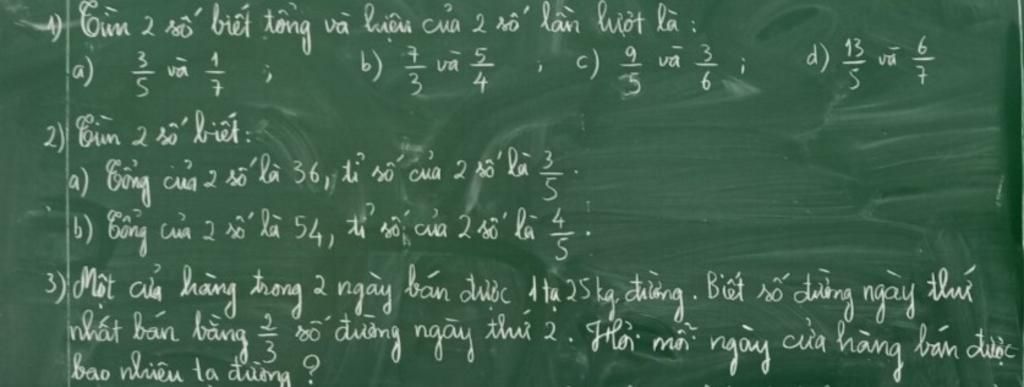 1) Tìm 2 số biết tổng và hiệu của 2 số lần lượt là:
a) 3/5 và 1/7 ; b) 7/3 và 5/4 ; c) 9/5 và 3/6 ; d) 13/5 và 6/7
2) Tìm 2 số biết:
a) Tổng của 2 số là 36, tỉ số của 2 số là 3/5.
b) Tổng của 2 số là 54, tỉ số của 2 số là 4/5.
3) Một cửa hàng trong 2 ngày bán được 1 tạ 25kg đường. Biết số đường ngày thứ
nhất bán bằng 2/3 số đường ngày thứ 2. Hỏi mỗi ngày cửa hàng bán được
bao nhiêu tạ đường?